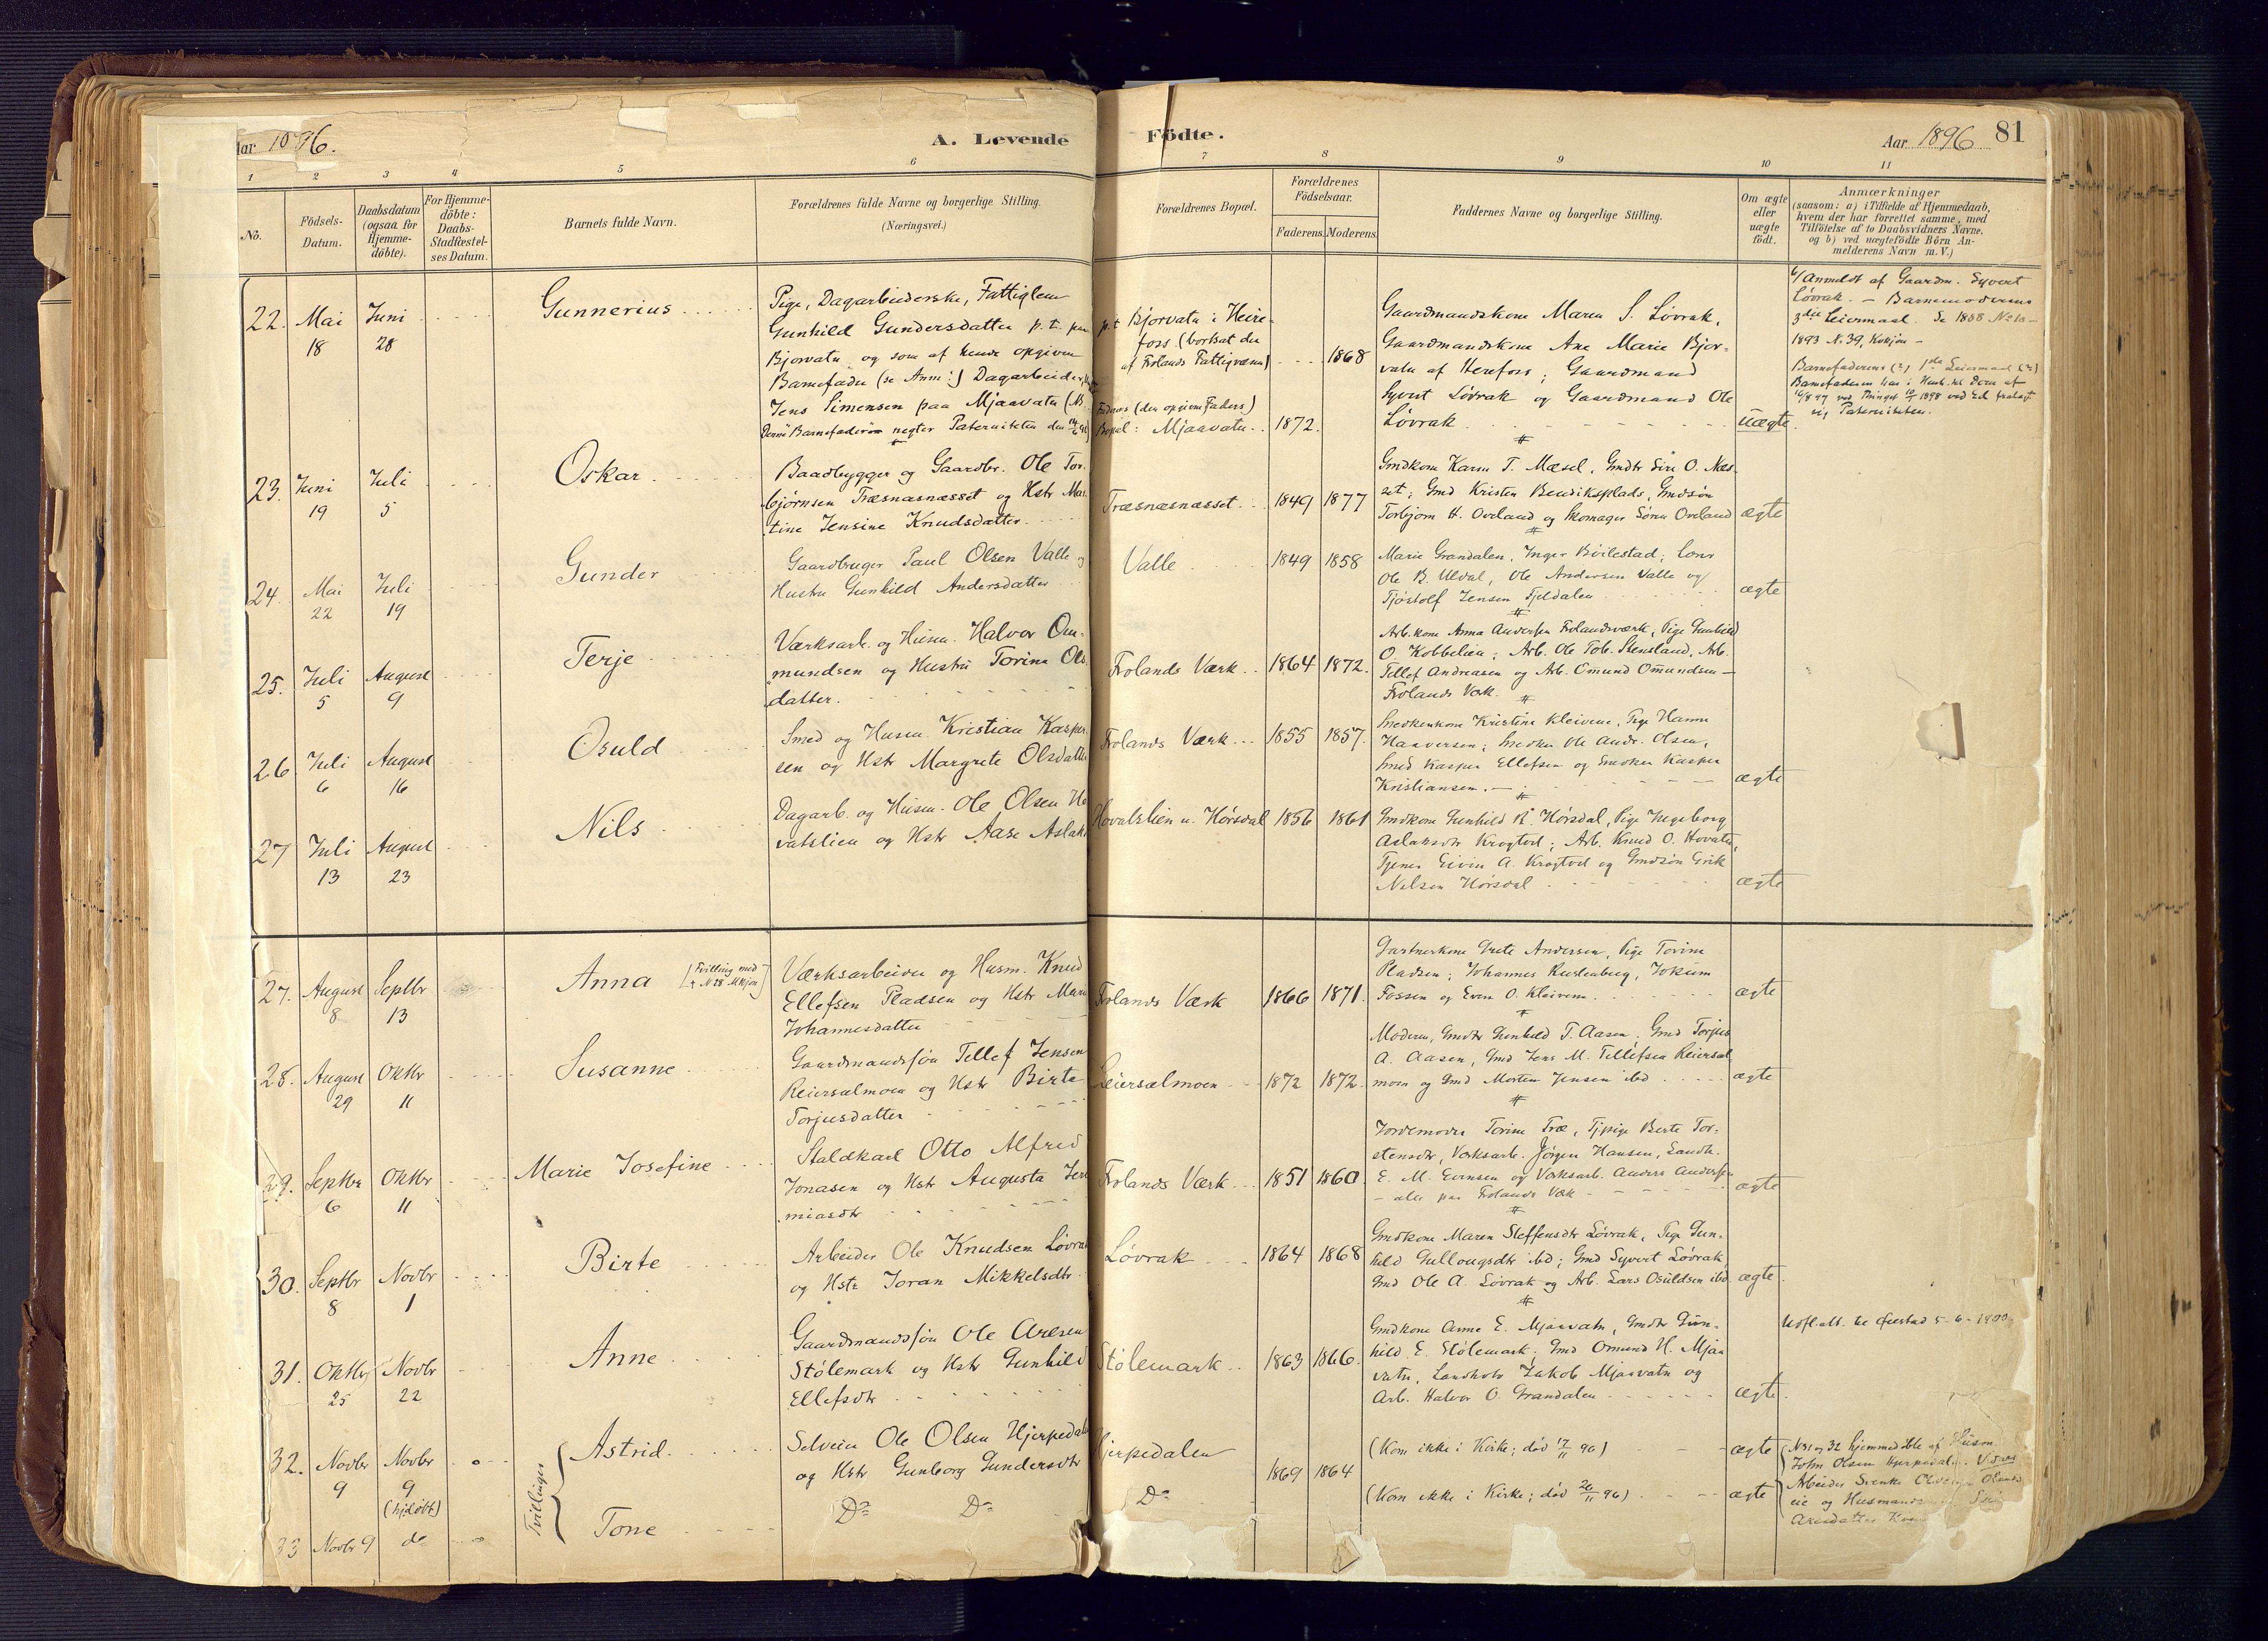 Aar 1896.
A. Levende
Födte.
Aar 1896
81
1 2 3 4 5 6 7 8 9 10 11
No.
Födsels-
Datum.
Daabsdatum
(ogsaa for
Hjemme-
döbte).
For Hjemme-
döbte:
Daabs-
Stadfæstel-
ses Datum.
Barnets fulde Navn.
Forældrenes fulde Navne og borgerlige Stilling.
(Næringsvei.)
Forældrenes Bopæl.
Forældrenes
Födselsaar.
Faderens. Moderens.
Faddernes Navne og borgerlige Stilling.
Om ægte
eller
uægte
födt.
Anmærkninger
(saasom: a) i Tilfælde af Hjemmedaab,
hvem der har forrettet samme, med
Tilföielse af to Daabsvidners Navne,
og b) ved uægtefödte Börn An-
melderens Navn m. V.)
22. Mai 18 Juni 28
Gunnerius
Pige, Dagarbeiderske, Fattiglem
Gunhild Gundersdatter p. t. paa
Bjorvatn og som af hende opgiven
Barnefader (se Anm:) Dagarbeider,
Jens Simensen paa Mjaavatn (NB.
Denne Barnefader negter Paterniteten den
p. t. Bjorvatn i Heire-
foss (bortsat der
af Frolands Fattigvæsen)
Faderens (den opgivne Faders)
Bopæl: Mjaavatn.
1872. 1868
Gaardmandskone Maren S. Lövrak,
Gaardmandskone Ane Marie Bjor-
vatn af Herefoss; Gaardmand
Syvert Lövrak og Gaardmand Ole
Lövrak
uægte.
Anmeldt af Gaardm. Syvert
Lövrak. - Barnemoderens
3die Leiermaal. Se 1888 No 10 -
1893 N. 39, Kvkjön -
Barnefaderens (?) 1ste Leiermaal (?)
Barnefaderen har i
ved Thinget 1898 ved Ed fralagt
sig Paterniteten.
23. Juni 19 Juli 5
Oskar
Baadbygger og Gaardbr. Ole Tor-
björnsen Træsnæsnæsset og Hstr Mar-
tine Jensine Knudsdatter
Træsnæsnæsset 1849 1877
Gmdkone Karen T. Mæsel, Gmdtr Siri O. Næs-
set; Gmd Kristen Bendiksplads, Gmdsön
Torbjørn H. Oveland og Skomager Sören Oveland
ægte
24. Mai 22 Juli 19
Gunder
Gaardbruger Paul Olsen Valle og
Hustru Gunhild Andersdatter
Valle 1849 1858
Marie Grandalen, Inger Böilestad; Lars
Ole B. Uldal, Ole Andersen Valle og
Tjöstolf Jensen Fjeldalen
ægte
25. Juli 5 August 9
Terje
Værksarb. og Husm. Halvor Om-
mundsen og Hustru Torine Ols-
datter.
Frolands Værk 1864 1872.
Arb.kone Anna Andersen Frolandsværk; Pige Gunhild
O. Kobbelien; Arb. Ole Tob. Stensland, Arb.
Tellef Andreasen og Arb. Omund Omundsen -
Frolands Værk.
26 Juli 6 August 16
Osuld
Smed og Husm. Kristian Kasper-
sen og Hstr Margrete Olsdatter
Frolands Værk 1855 1857.
Snedkerkone Kristine Kleivene, Pige Hanne
Haaversen; Snedker Ole Andr. Olsen,
Smed Kasper Ellefsen og Snedker Kasper
Kristiansen.
ægte
27 Juli 13 August 23
Nils
Dagarb. og Husm. Ole Olsen Ho-
vatslien og Hstr Aase Aslaks
Hovatslien u. Hörsdal 1856 1861
Gmdkone Gunhild K. Hörsdal, Pige Ingeborg
Aslaksdtr Krogtvet; Arb. Knud O. Hovatn,
Tjener Eivin A. Krogtvet og Gmdsön Erik
Nilsen Hörsdal
ægte
27. August 8 Septbr 13
Anna [Tvilling med
N 28 Mkjön]
Værksarbeider og Husm. Knud
Ellefsen Pladsen og Hstr Maren
Johannesdatter
Frolands Værk 1866 1871.
Gartnerkone Grete Andersen, Pige Torine
Pladsen; Johannes Rustenberg, Jokum
Fossen og Even O. Kleivene
ægte
28. August 29 Oktbr 11
Susanne
Gaardmandssön Tellef Jensen
Reiersølmoen og Hstr Birte
Torjusdatter
Reiersølmoen 1872 1872.
Moderen, Gmdtr Gunhild T. Aasen, Gmd Torjus
A. Aasen, Gmd Jens M. Tellefsen Reiersøl-
moen og Gmd Morten Jensen ibid
ægte
29. Septbr 6 Oktbr 11
Marie Josefine
Staldkarl Otto Alfred
Jonasen og Hstr Augusta Jere-
miasdtr
Frolands Værk 1851 1860.
Jordemoder Torine Træ, Tjpige Berte Tor-
stensdtr, Værksarb. Jörgen Hansen, Landh.
E. M. Evensen og Værksarb. Anders Andersen
- alle paa Frolands Værk -
ægte
30. Septbr 8 Novbr 1
Birte
Arbeider Ole Knudsen Lövrak
og Hstr Joran Mikkelsdtr.
Lövrak 1864 1868
Gmdkone Maren Steffensdtr Lövrak, Pige Gun-
hild Gullougsdtr ibid; Gmd Syvert Lövrak,
Gmd Ole A. Lövrak og Arb. Lars Osuldsen ibid
ægte.
31. Oktbr 25 Novbr 22
Anne
Gaardmandssön Ole Aresen
Stölemark og Hstr Gunhild
Ellefsdtr
Stölemark 1863 1866.
Gmdkone Anne E. Mjaavatn, Gmdtr Gun-
hild E. Stölemark; Gmd Omund H. Mjaa-
vatn, Landholv Jakob Mjaavatn og
Arb. Halvor O. Grandalen
ægte.
Udfl.att. til Øiestad 5-6-1900
32. Novbr 9 Novbr 9 (hjdöbt)
Tvillinger
Astrid.
Selveier Ole Olsen Hjerpedalen
og Hstr Gunborg Gundersdtr
Hjerpedalen 1869 1864
(Kom ikke i Kirke; död 17/11 96)
ægte
N 31 og 32 hjemmedöbte af Husm.
John Olsen Hjerpedalen. Vidner
Arbeider Svenke
eie og Husmands
Aresdatter
33 Novbr 9 do
Tone
Do Do Do
(Kom ikke i Kirke; död 26/11 96)
ægte